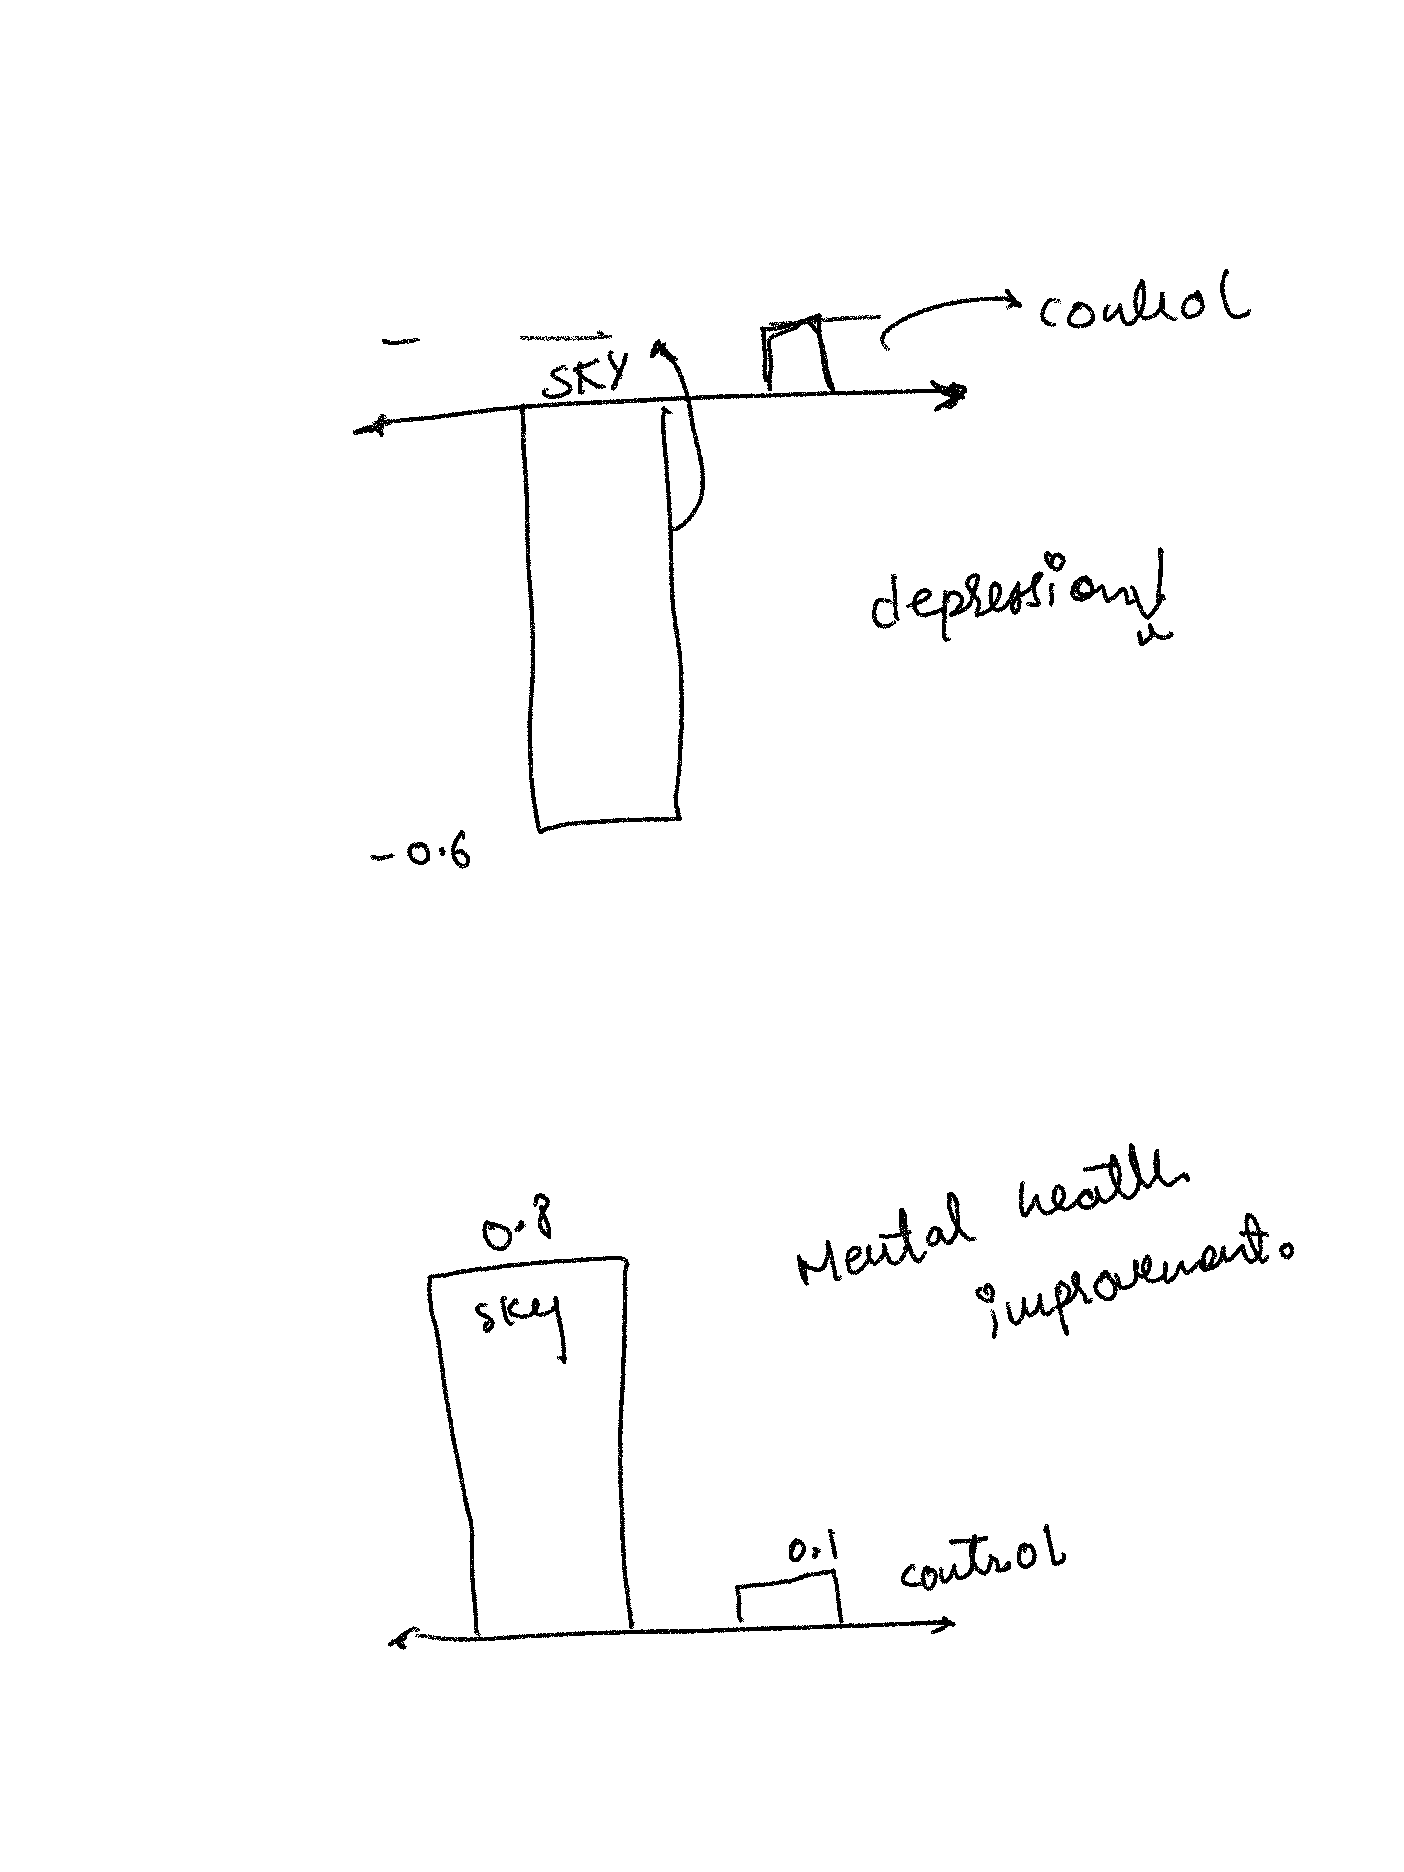 control
SKY
depression
-0.6
Mental health
improvement.
0.8
SKY
0.1
control